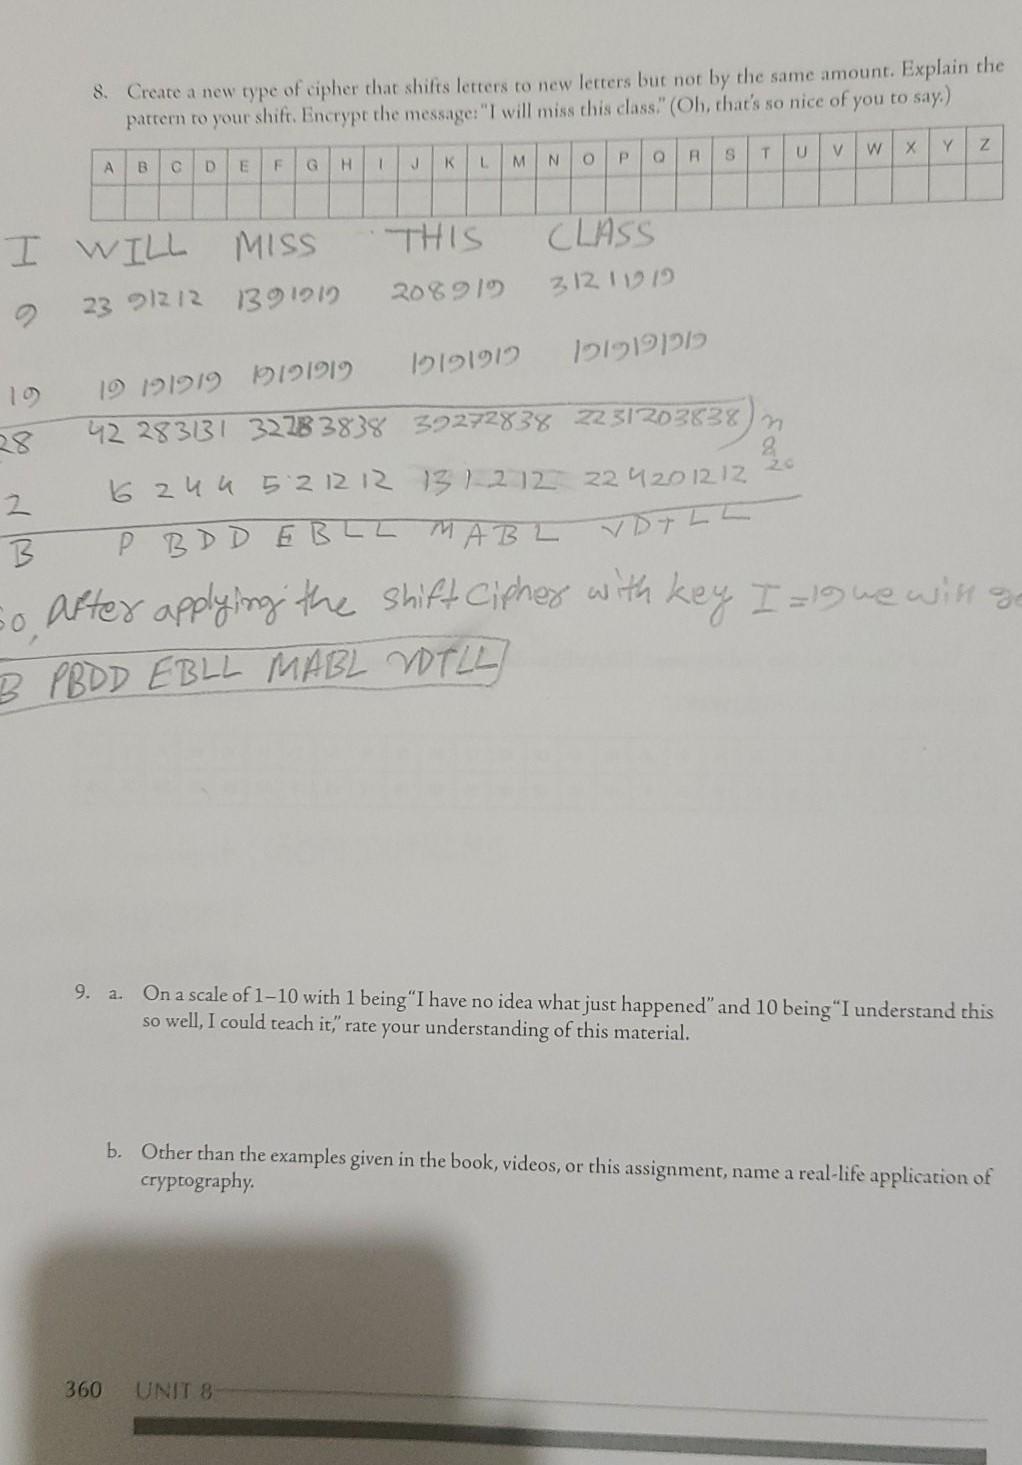 8. Create a new type of cipher that shifts letters to new letters but not by the same amount. Explain the
pattern to your shift. Encrypt the message: "I will miss this class." (Oh, that's so nice of you to say.)
A B C D E F G H I J K L M N O P Q R S T U V W X Y Z
I WILL MISS THIS CLASS
9 23 91212 1391919 208919 31211919
19 19 191919 19191919 19191919 1919191919
28 42 283131 32283838 39272838 2231203838
2 16 2 4 4 5 2 12 12 13 1 2 12 22 4 20 12 12
B P BDD EBLL MABL VDTLL
So, After applying the shift cipher with key I=19 we will
B PBDD EBLL MABL VDTLL
9. a. On a scale of 1–10 with 1 being "I have no idea what just happened" and 10 being "I understand this
so well, I could teach it," rate your understanding of this material.
b. Other than the examples given in the book, videos, or this assignment, name a real-life application of
cryptography.
360 UNIT 8